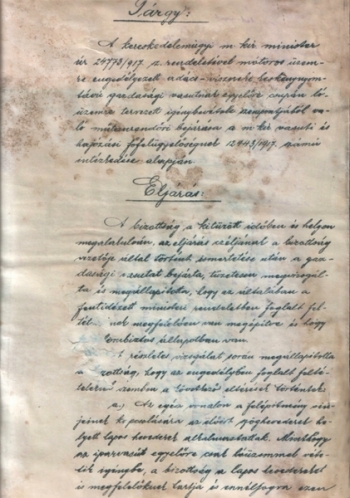 Tárgy:
A kereskedelemügyi m. kir. minister
úr 24773/917. sz. rendeletével motoros üzem-
re engedélyezett keskenynyom-
távú gazdasági vasútnak egyelőre csupán ló-
üzemre tervezett igénybevétele szempontjából va-
ló műtanrendőri bejárása a m. kir. vasúti és
hajózási főfelügyelőségnek 12443/1917. számú
intézkedése alapján.
Eljárás:
A bizottság a kitűzött időben és helyen
megalakulván, az eljárás céljának a bizottság
vezetője által történt ismertetése után a gaz-
dasági vasutat bejárta, tüzetesen megvizsgál-
ta és megállapította, hogy az általában a
fentidézett minden rendeletben foglalt fel-
megfelelően van megépítve és hogy
állapotban van.
részletes vizsgálat során megállapította
hogy az engedélyben foglalt felté-
szemben a következő eltérések történtek:
a./ Az egész vonalon a felépítmény sín-
jeinek kapcsolására az előírt szöghevederek he-
lyett lapos hevederek alkalmaztattak. Minthogy
az iparvasút egyelőre csak lóüzemmel véte-
tik igénybe, a bizottság a lapos hevedereket
is megfelelőknek tartja és ezen